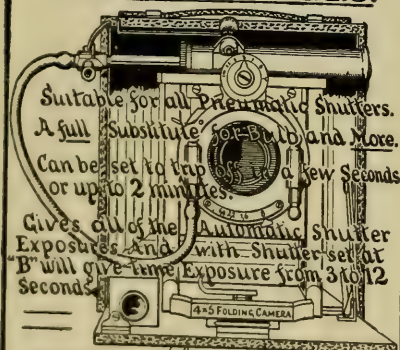 Suitable for all Pneumatic Shutters.
A full Substitute for Bulb and More.
Can be set to trip off in a few Seconds
or up to 2 minutes.
Gives all of the Automatic Shutter
Exposures And with Shutter set at
"B" will give time Exposure from 3 to 12
Seconds
4×5 FOLDING CAMERA